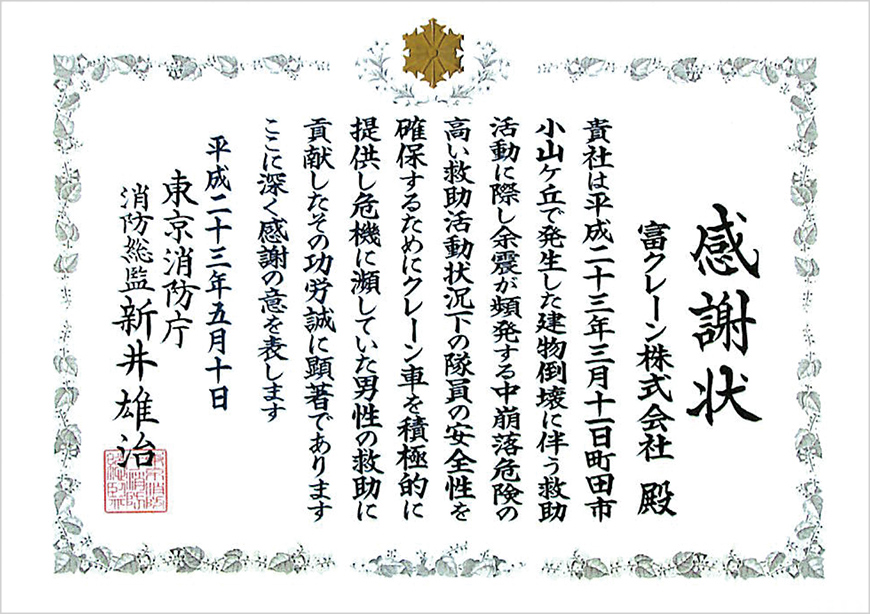 感謝状
富クレーン株式会社 殿
貴社は平成二十三年三月十一日町田市
小山ヶ丘で発生した建物倒壊に伴う救助
活動に際し余震が頻発する中崩落危険の
高い救助活動状況下の隊員の安全性を
確保するためにクレーン車を積極的に
提供し危機に瀕していた男性の救助に
貢献したその功労誠に顕著であります
ここに深く感謝の意を表します
平成二十三年五月十日
東京消防庁
消防総監 新井雄治